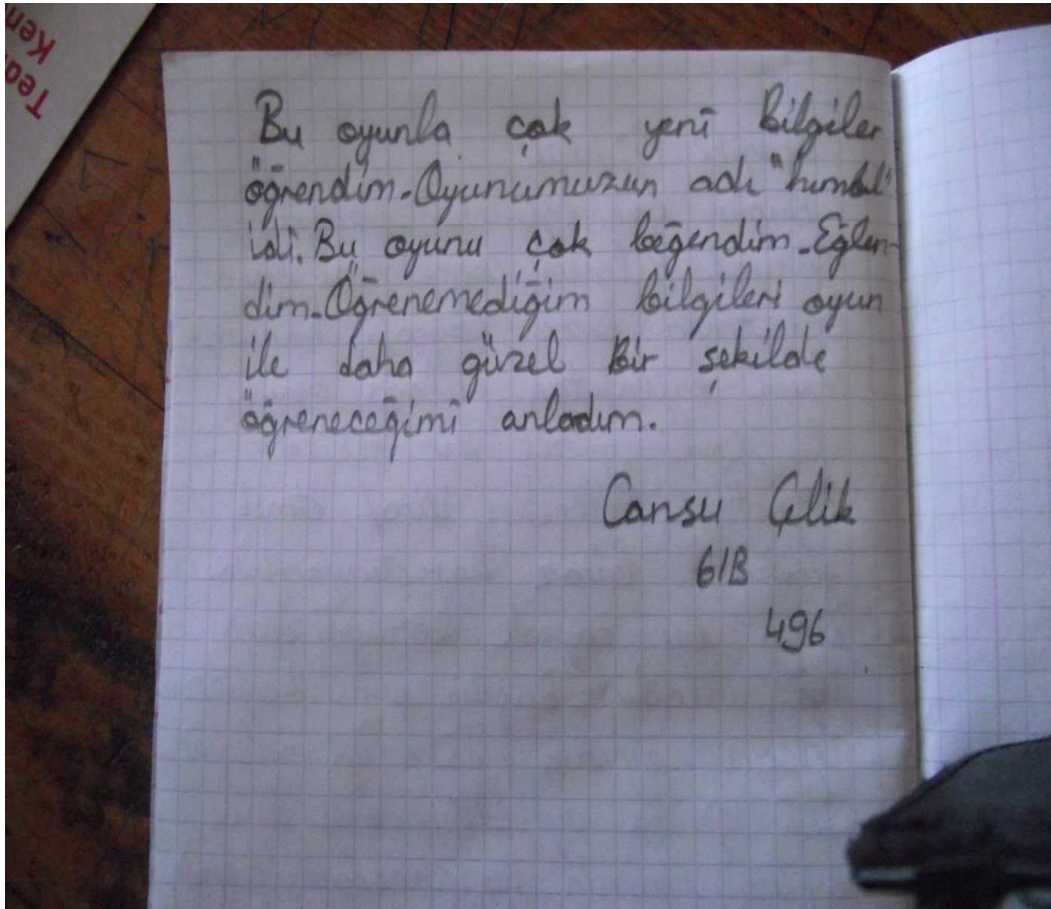 Bu oyunla çok yeni bilgiler
öğrendim. Oyunumuzun adı "hımbıl"
idi. Bu oyunu çok beğendim. Eğlen-
dim. Öğrenemediğim bilgileri oyun
ile daha güzel bir şekilde
öğreneceğimi anladım.
Cansu Çelik
6/B
496
Ken